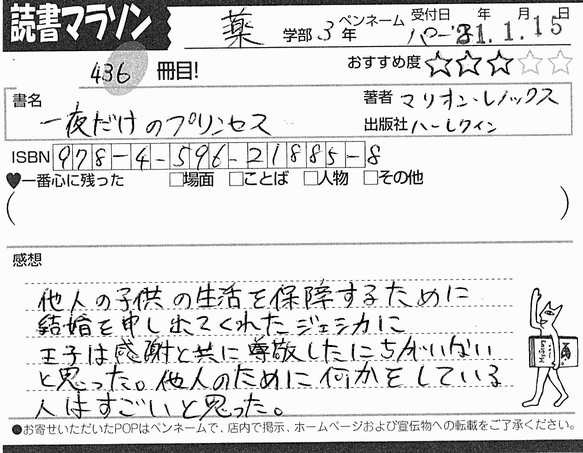 読書マラソン
薬 学部 3 年
ペンネーム
受付日 年 月 日
21.1.15
436 冊目!
おすすめ度 ☆☆☆☆☆
書名
一夜だけのプリンセス
著者 マリオン・レノックス
出版社 ハーレクイン
ISBN 978-4-596-21885-8
♥一番心に残った □場面 □ことば □人物 □その他
( )
感想
他人の子供の生活を保障するために
結婚を申し出てくれたジェシカに
王子は感謝と共に尊敬したにちがいない
と思った。他人のために何かをしている
人はすごいと思った。
●お寄せいただいたPOPはペンネームで、店内で掲示、ホームページおよび宣伝物への転載をご了承ください。